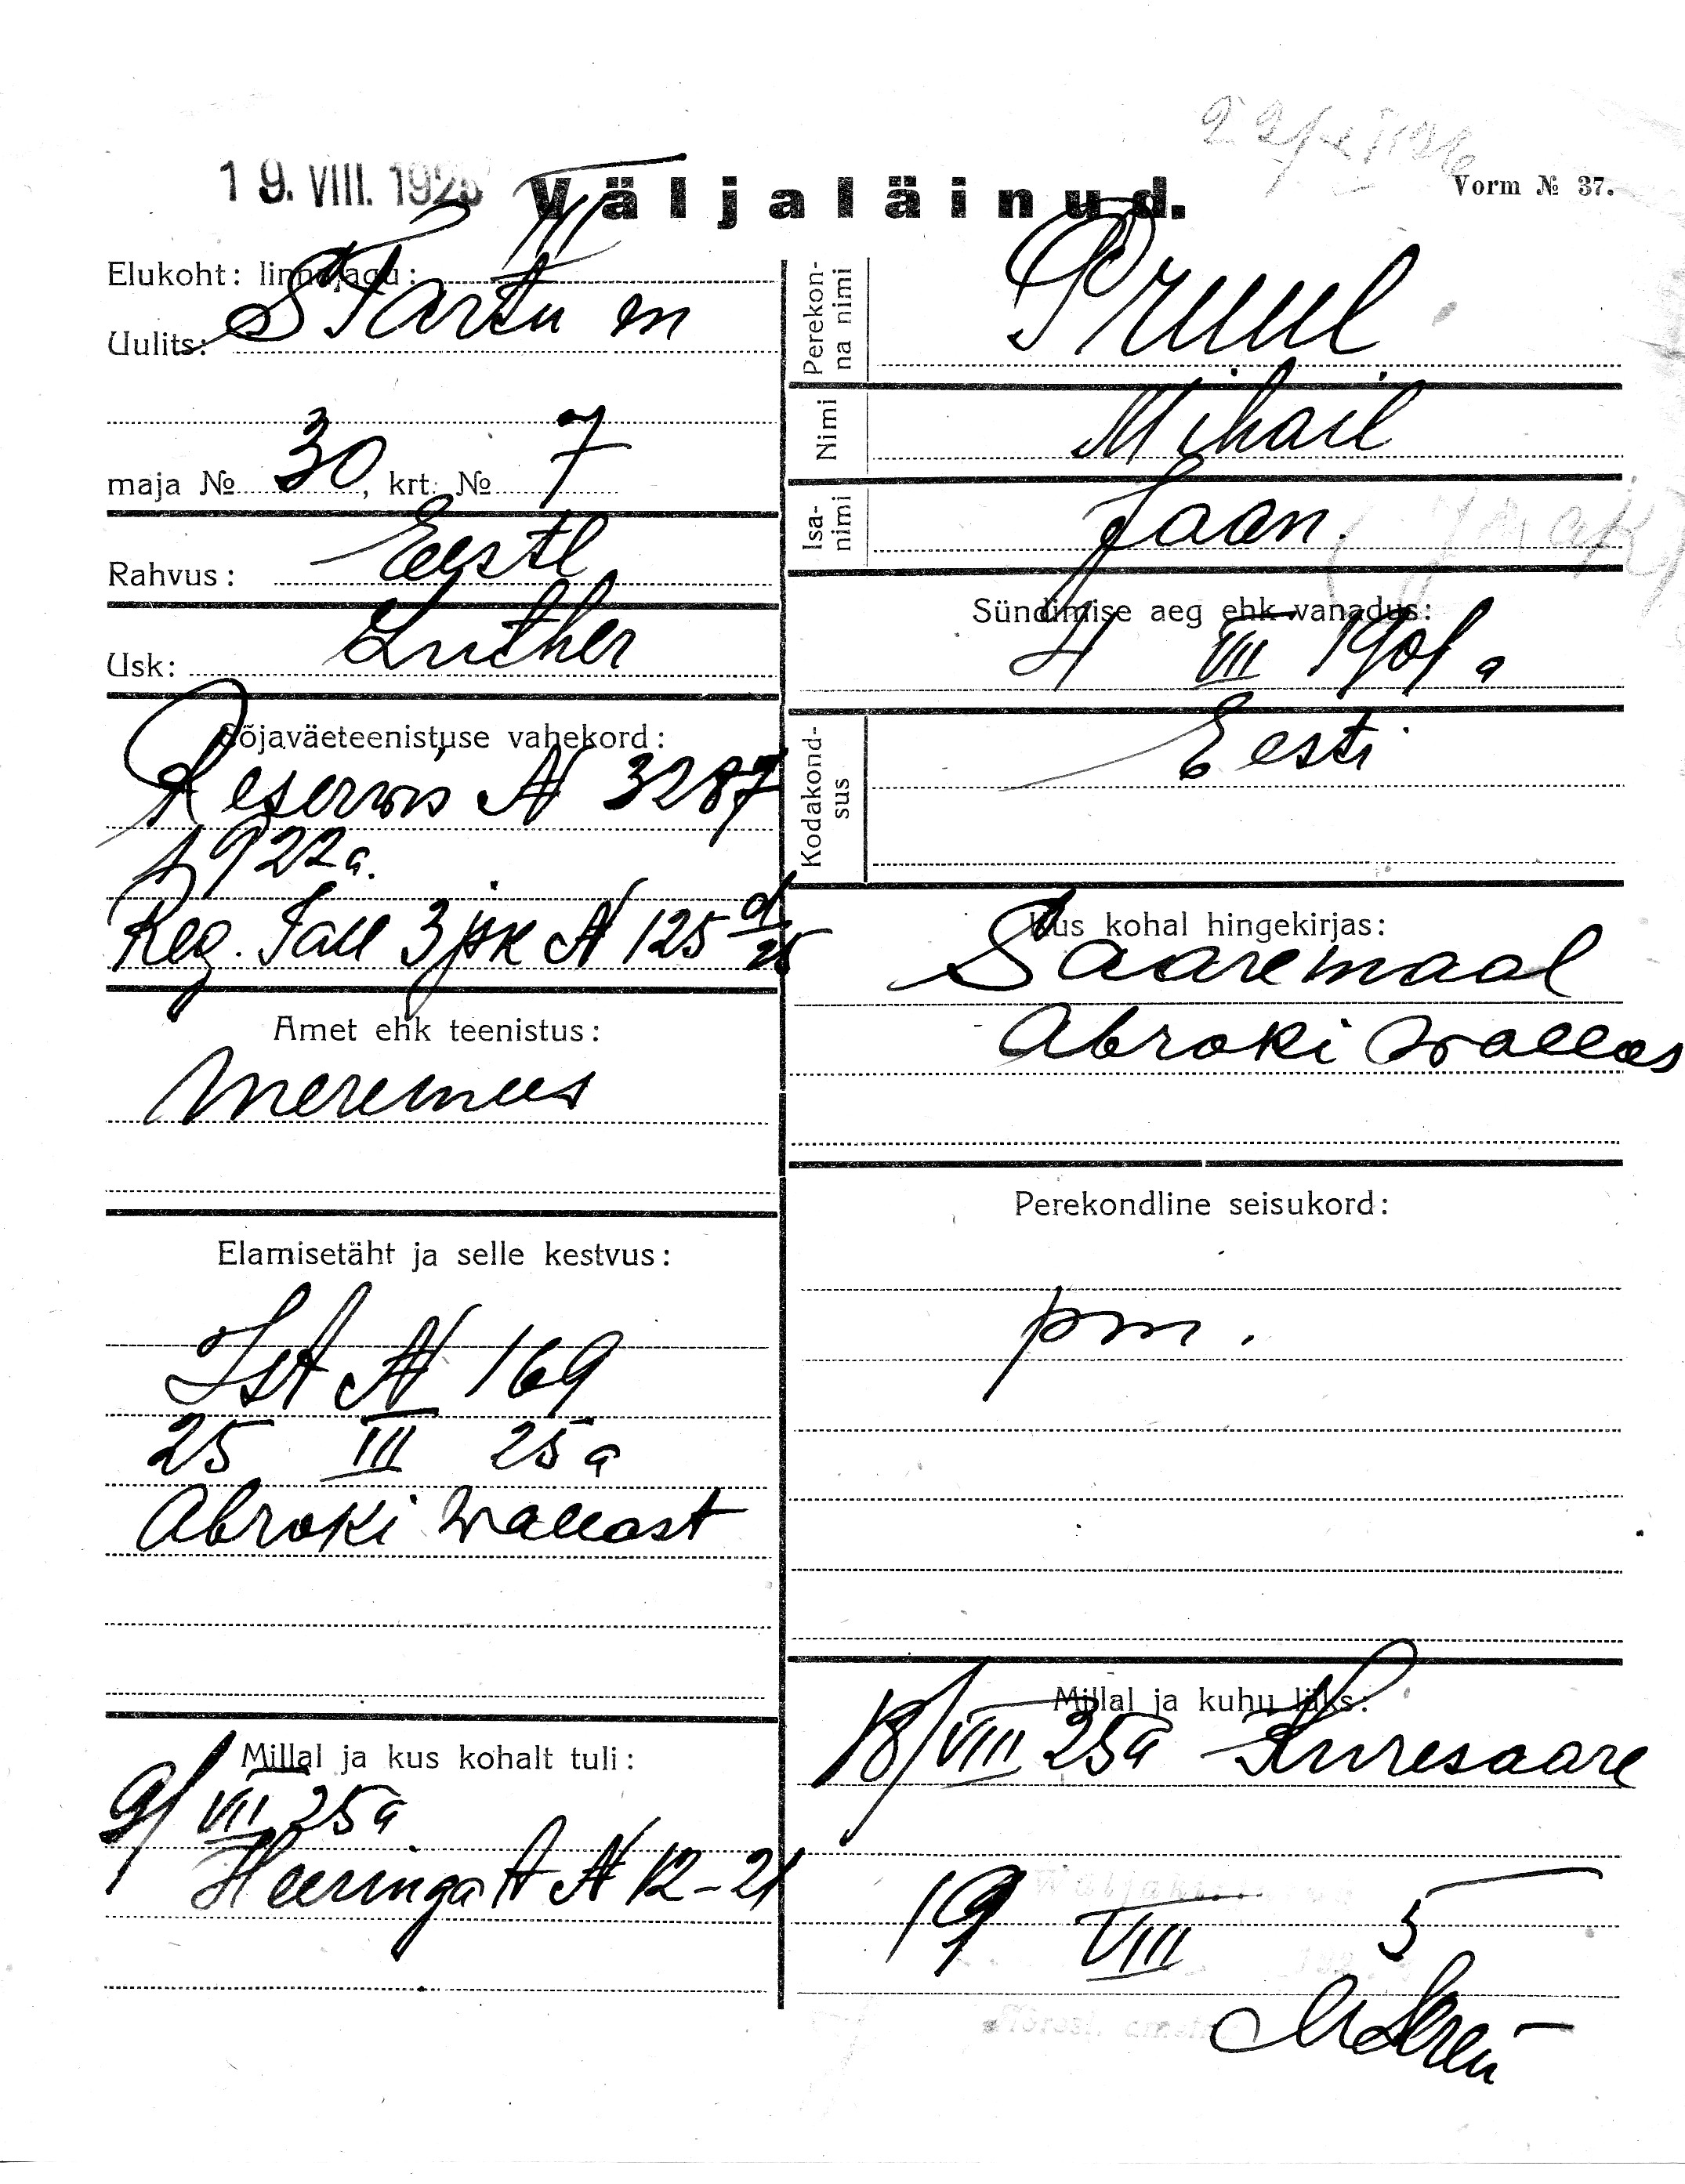 19. VIII. 1925
Väljaläinud.
Vorm № 37.
Elukoht: linnajagu: III
Uulits: S Tartu m
maja № 30, krt. № 7
Rahvus: Eesti
Usk: Luther
Sõjaväeteenistuse vahekord:
Reservis № 3287
1922 a.
Reg. Tall 3 jsk № 125 d/25
Amet ehk teenistus:
Meremees
Elamisetäht ja selle kestvus:
Ist № 169
25 III 25 a
Abroki wallast
Millal ja kus kohalt tuli:
9/VII 25 a
Heeringa t № 12-21
Perekonna nimi
Pruul
Nimi
Mihail
Isanimi
Jaan.
(Jaak)
Sündimise aeg ehk vanadus:
4 VII 1901 a
Kodakondsus
Eesti
Kus kohal hingekirjas:
Saaremaal
Abroki wallas
Perekondline seisukord:
pm.
Millal ja kuhu läks:
18/VIII 25 a Kuresaare
19 VIII 5